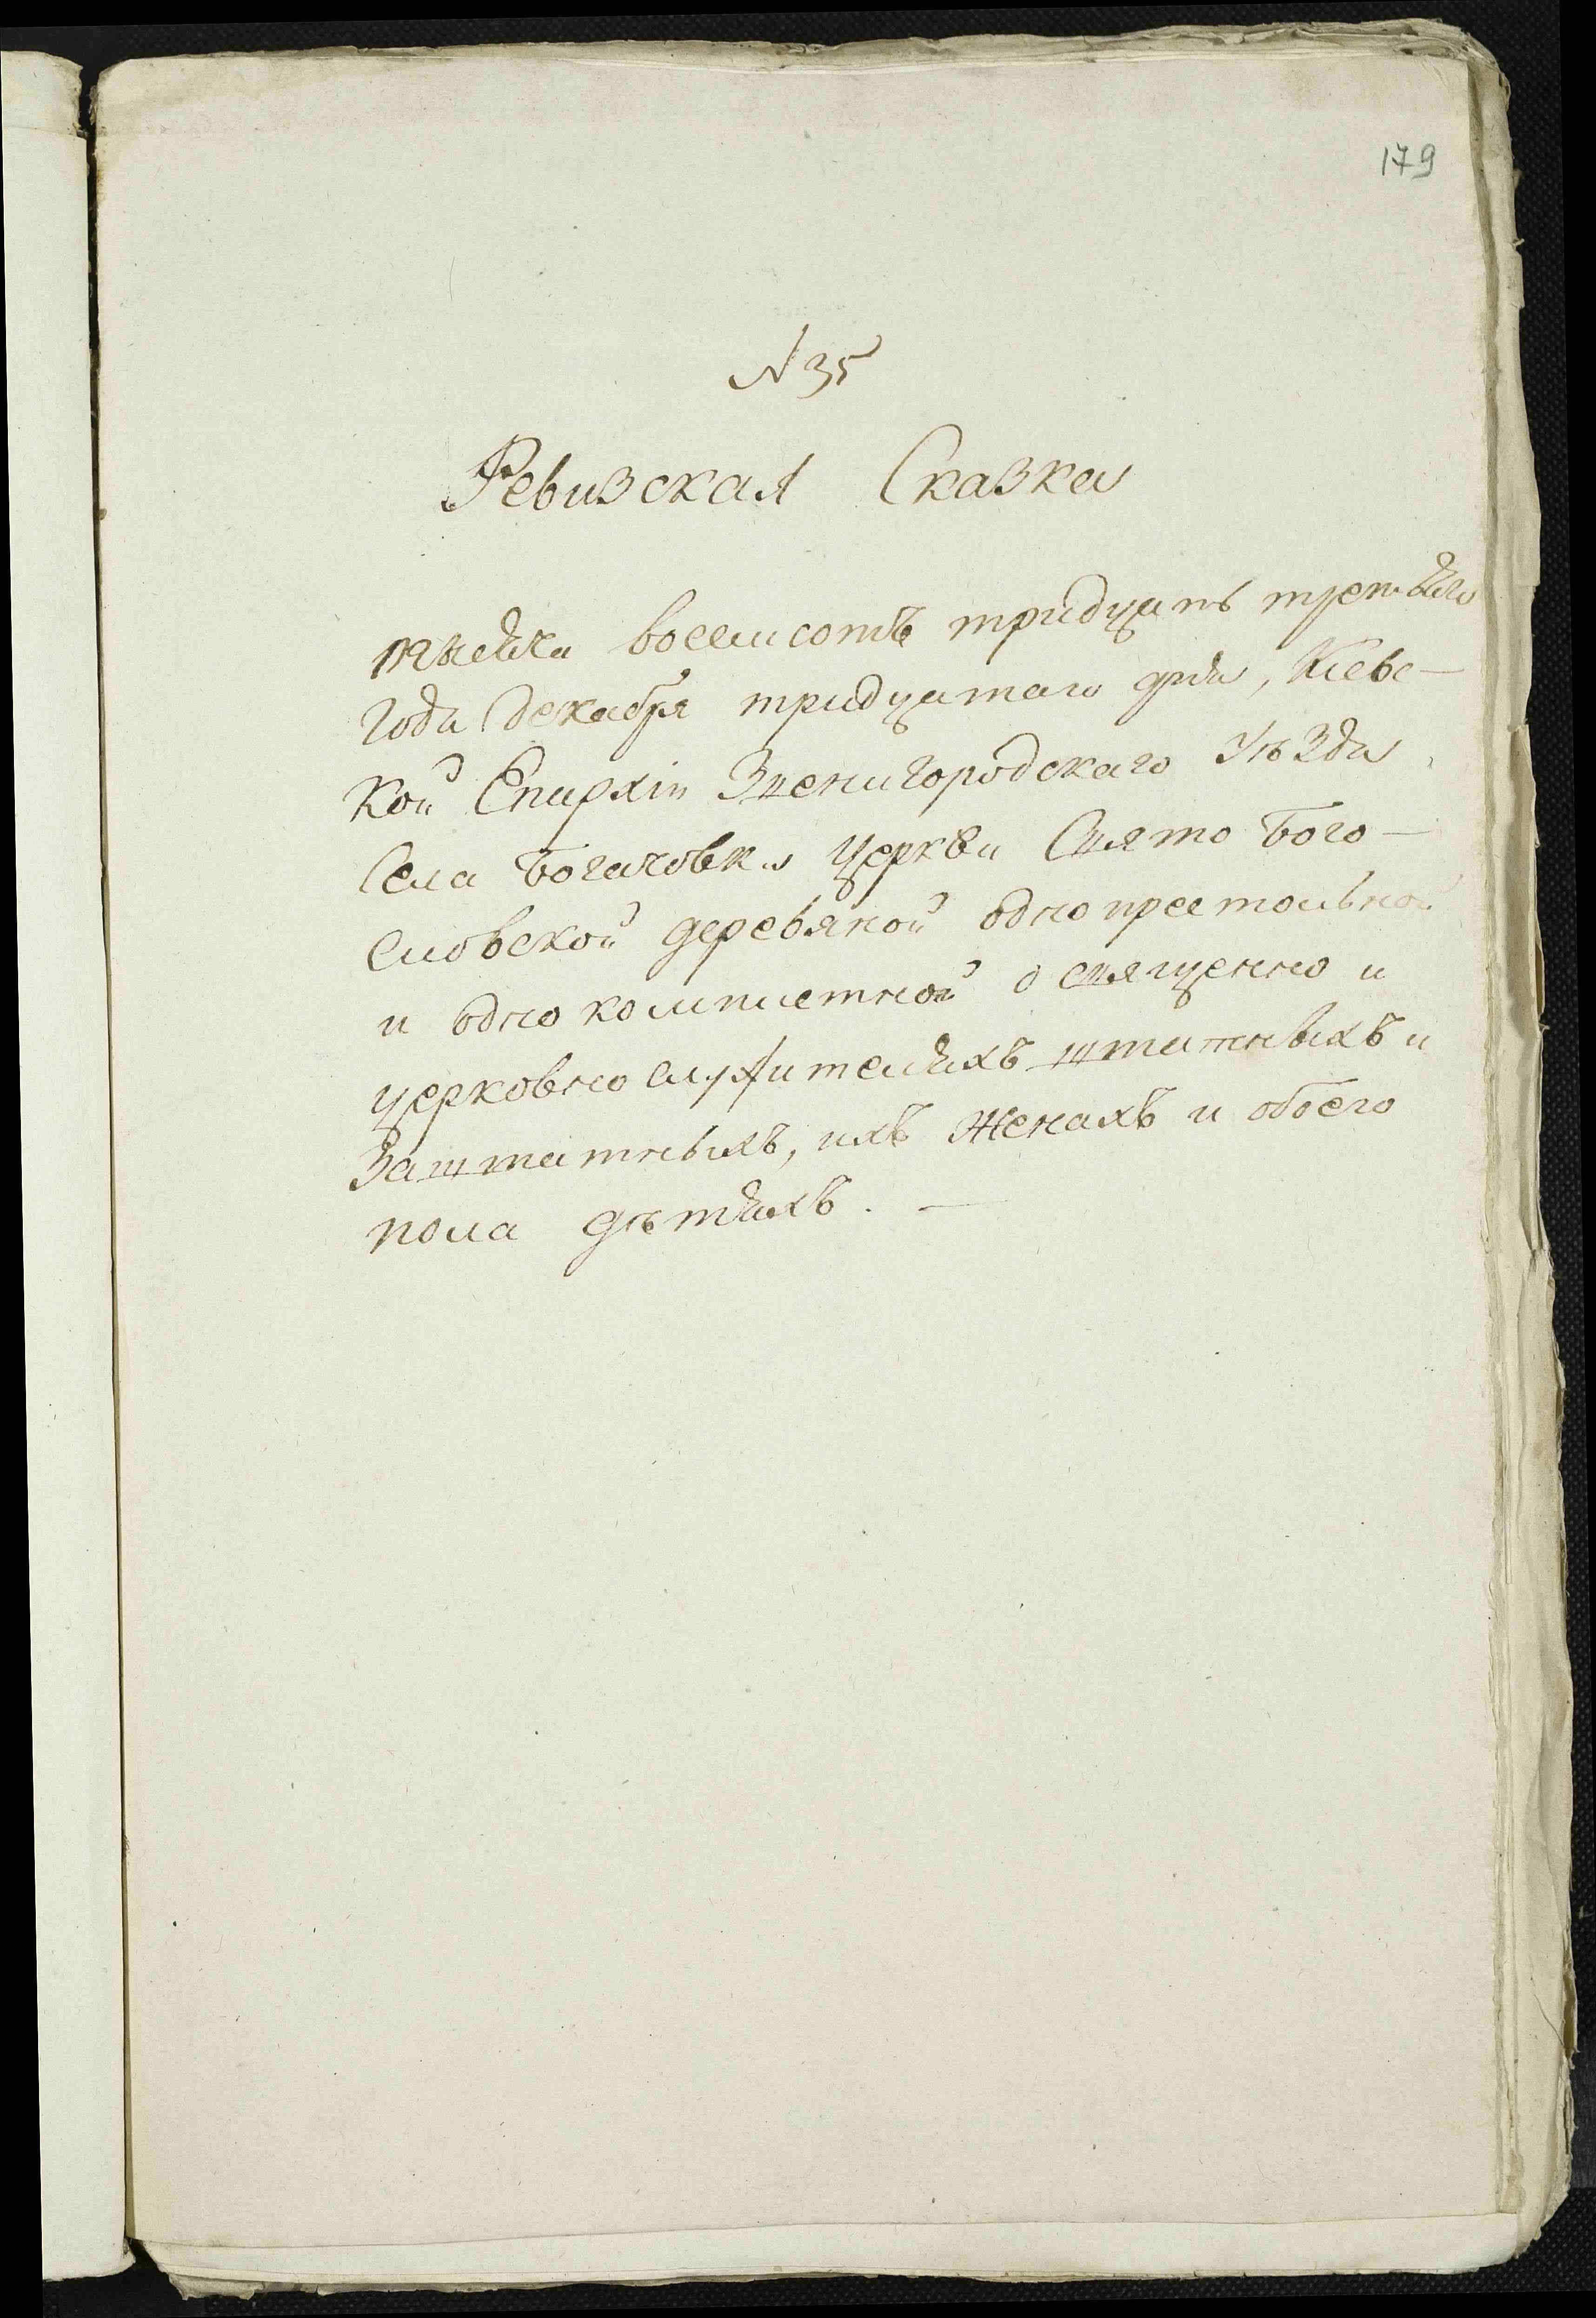 179
№ 35
Ревизская Сказка
тысяча восемьсотъ тридцать третьяго
года Декабря тридцатаго дня, Кіевс-
кой Епархіи Звенигородскаго Уѣзда,
Села Богачовки Церкви Свято Бого-
словской деревяной однопрестольной
и однокомплетной о священно и
церковнослужителяхъ штатныхъ и
заштатныхъ, ихъ женахъ и обоего
пола дѣтяхъ. —